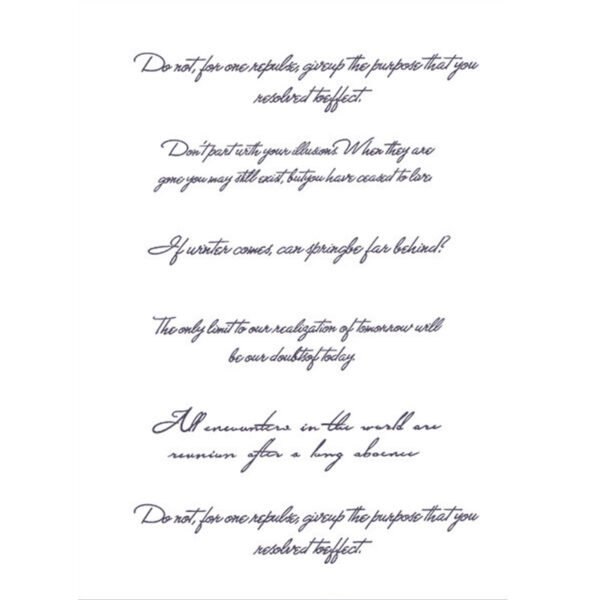 Do not, for one repulse, giveup the purpose that you
resolved toeffect.
Don't part with your illusions. When they are
gone you may still exist, butyou have ceased to live.
If winter comes, can springbe far behind?
The only limit to our realization of tomorrow will
be our doubtsof today.
All encounters in the world are
reunion after a long absence
Do not, for one repulse, giveup the purpose that you
resolved toeffect.